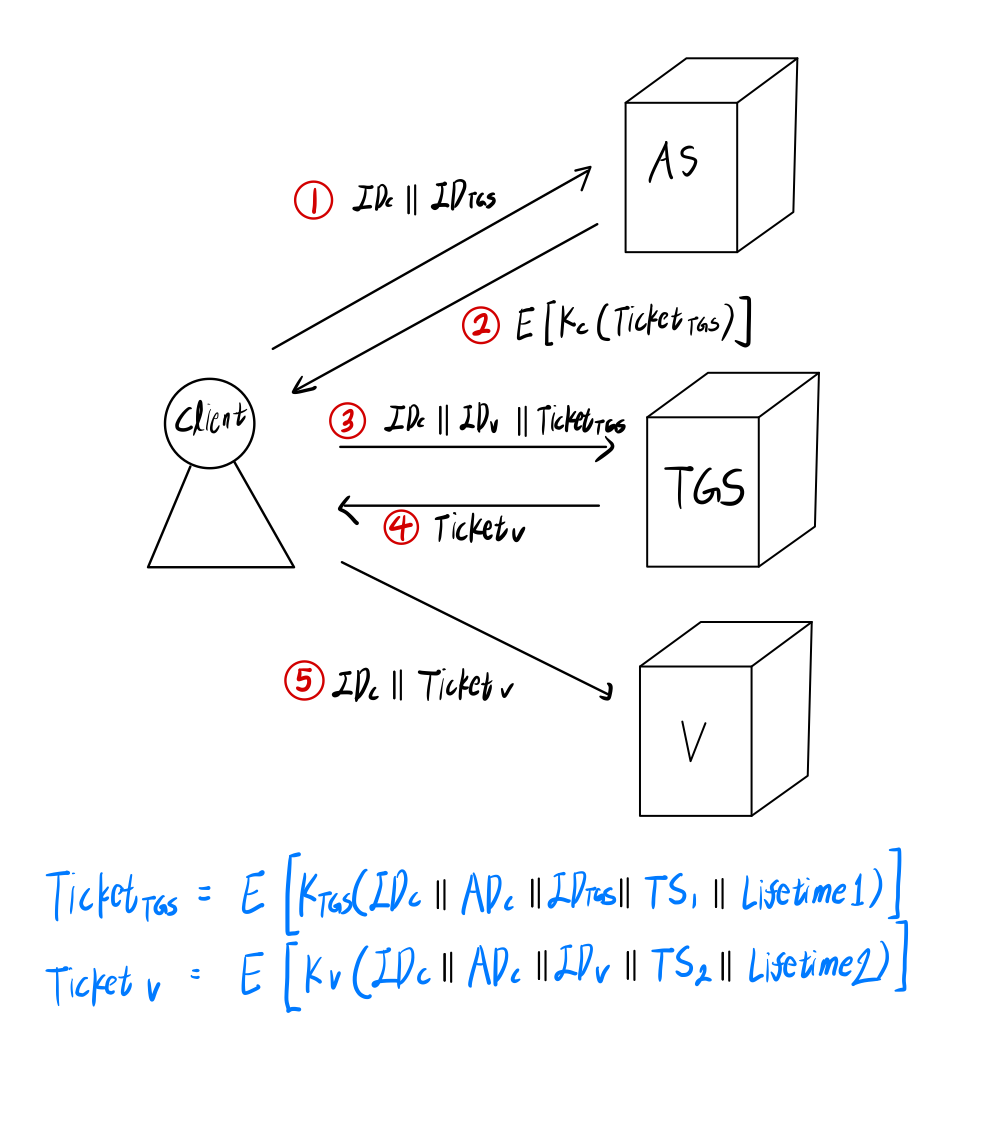 AS
① IDc || IDTGS
② E [Kc (TicketTGS)]
Client
③ IDc || IDv || TicketTGS
TGS
④ Ticketv
⑤ IDc || Ticketv
V
TicketTGS = E [KTGS(IDc || ADc || IDTGS || TS1 || Lifetime1)]
Ticketv = E [Kv (IDc || ADc || IDv || TS2 || Lifetime2)]